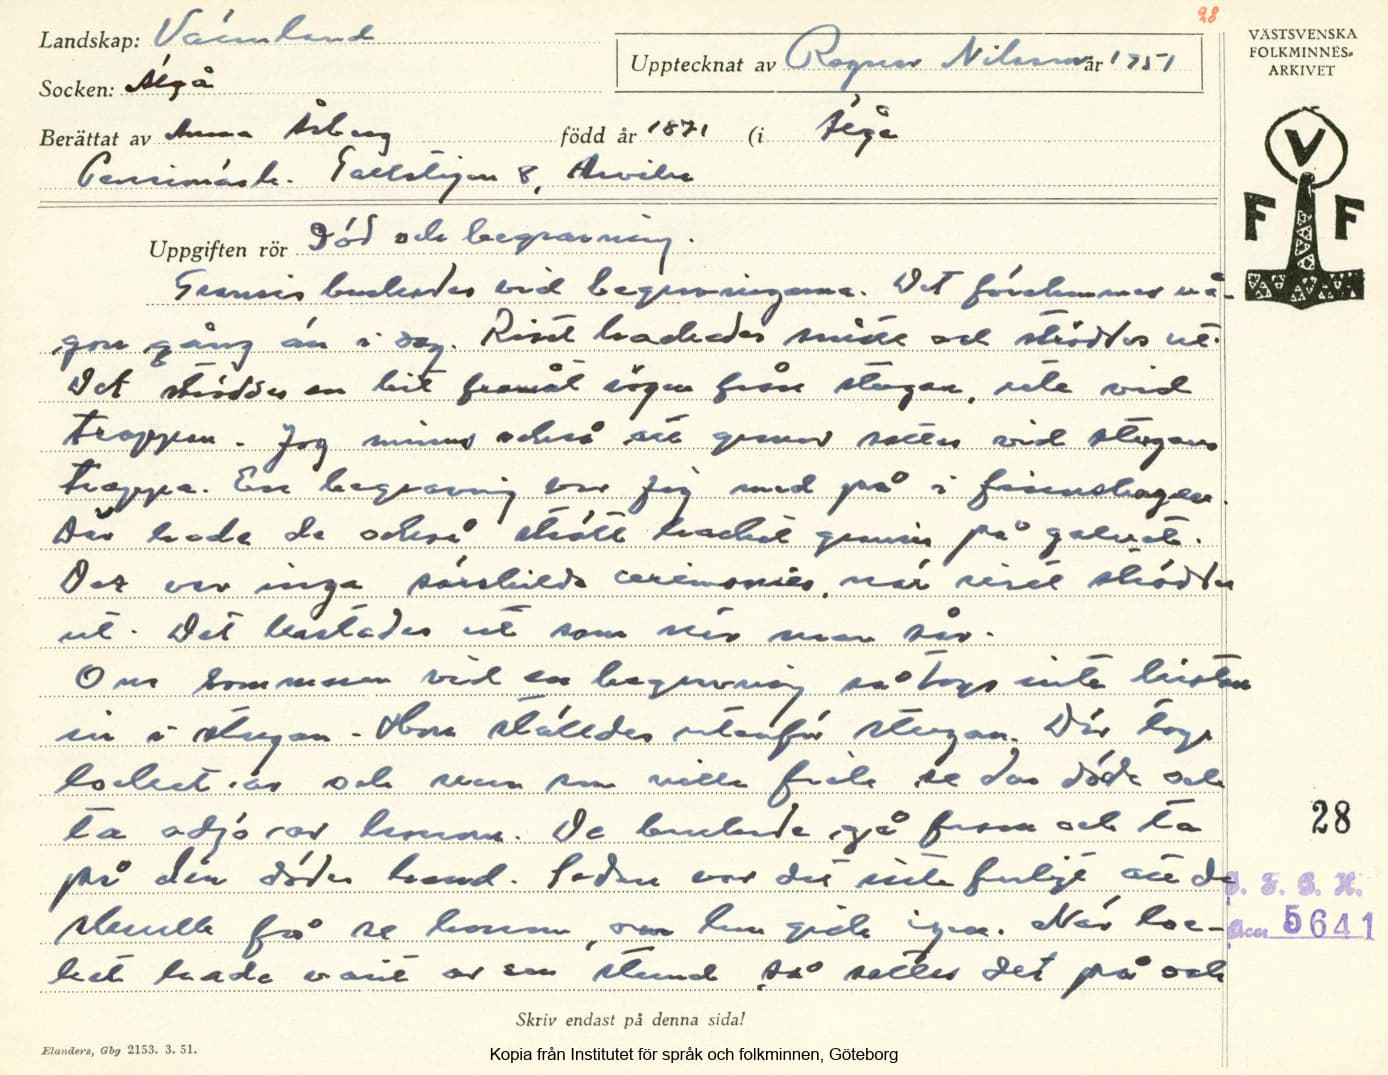 28
Landskap: Värmland
Upptecknat av Ragnar Nilsson år 1951
VÄSTSVENSKA
FOLKMINNES-
ARKIVET
Socken: Älgå
Berättat av Anna Åsberg född år 1871 (i Älgå
Pensionärsh. Arvika
V
F F
Uppgiften rör Död och begravning.
Granris hackades vid begravningarna. Det förekommer nå-
gon gång än i dag. Riset hackades smått och ströddes ut.
Det ströddes en bit framåt vägen från stugan, ute vid
trappen. Jag minns också att granar sattes vid stugans
trappa. En begravning var jag med på i finnskogen.
Där hade de också strött hackat granris på golvet.
Det var inga särskilda ceremonier, när riset ströddes
ut. Det kastades ut som när man sår.
Om sommaren vid en begravning så togs inte kistan
in i stugan. Hon ställdes utanför stugan. Där togs
locket av och var som ville fick se den döde och
ta adjö av honom. De brukade gå fram och ta
på den dödes hand. Sedan var det inte farligt att de
skulle få se honom, om han gick igen. När loc-
ket hade varit av en stund så sattes det på och
28
I. F. G. H.
Acc 5641
Skriv endast på denna sida!
Elanders, Gbg 2153. 3. 51.
Kopia från Institutet för språk och folkminnen, Göteborg